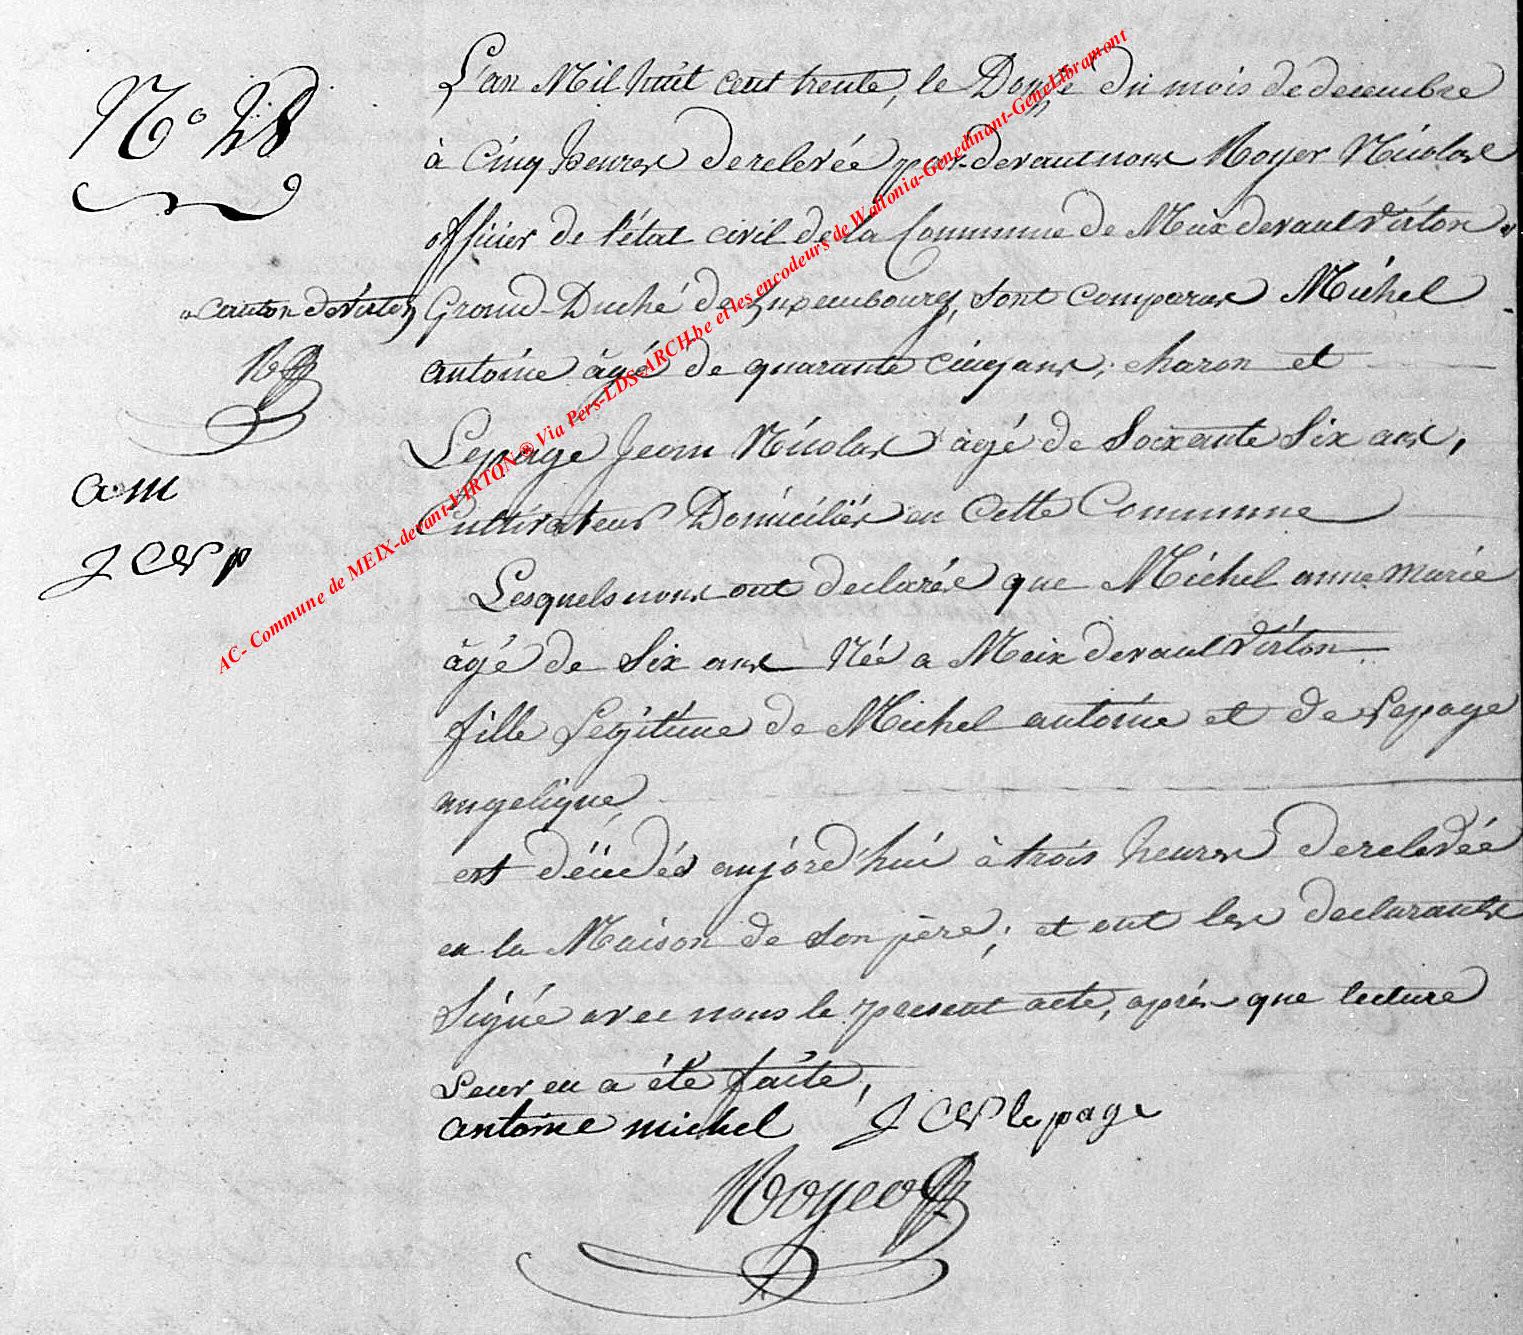 N° 28
L'an Mil huit cent trente, le Douze du mois de decembre
à Cinq heures de relevée par-devant nous Royer Nicolas
officier de l'état civil de la Commune de Meix devant Virton
canton de Virton
Grand-Duché de Luxembourg, sont comparus Michel
antoine âgé de quarante cinq ans, charon et
Lepage Jean Nicolas âgé de Soixante Six ans,
Cultivateur Domiciliés en Cette Commune
am
Lesquels nous ont declarés que Michel anne marie
âgé de Six ans Née a Meix devant Virton
fille Légitime de Michel antoine et de Lepage
angelique,
est décédés aujord'hui à trois heures de relevée
en la Maison de son père; et ont les declarants
Signé avec nous le present acte, après que lecture
Leur en a été faite,
antoine michel J lepage
Royer
AC- Commune de MEIX-devant-VIRTON ® Via Pers-LDS-ARCH.be et les encodeurs de Wallonia-Genedinant-GeneLibramont